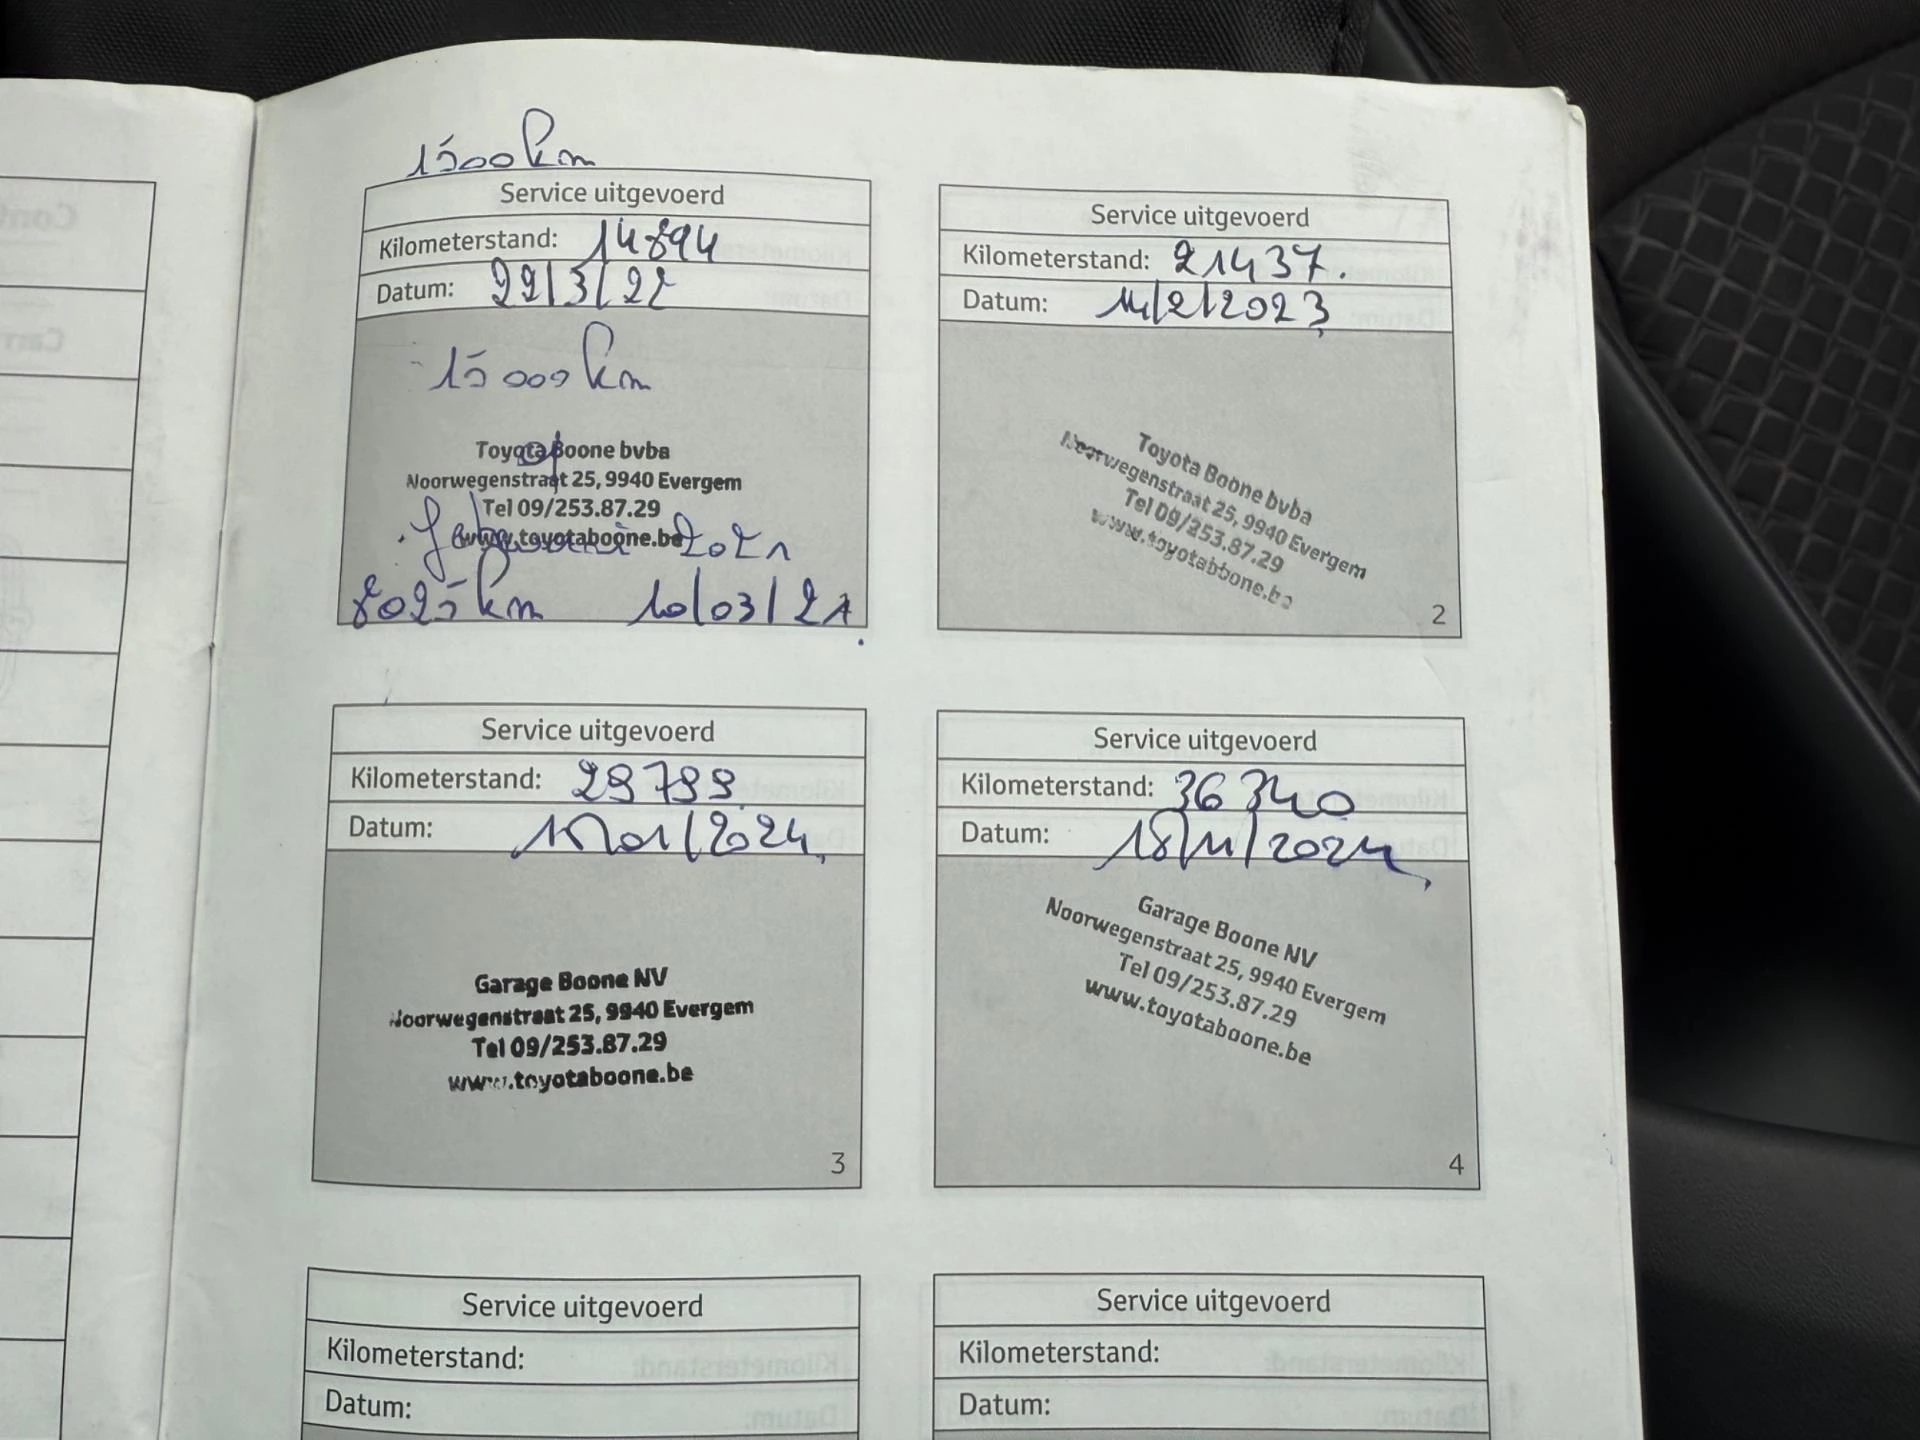 1500 km
Service uitgevoerd
Kilometerstand: 14894
Datum: 22/3/22
15 000 km
of
Toyota Boone bvba
Noorwegenstraat 25, 9940 Evergem
Tel 09/253.87.29
www.toyotaboone.be
2021
8025 km 10/03/21
Service uitgevoerd
Kilometerstand: 21437.
Datum: 14/2/2023
Toyota Boone bvba
Noorwegenstraat 25, 9940 Evergem
Tel 09/253.87.29
www.toyotaboone.be
2
Service uitgevoerd
Kilometerstand: 29799.
Datum: 15/01/2024
Garage Boone NV
Noorwegenstraat 25, 9940 Evergem
Tel 09/253.87.29
www.toyotaboone.be
3
Service uitgevoerd
Kilometerstand: 36340
Datum: 18/11/2024
Garage Boone NV
Noorwegenstraat 25, 9940 Evergem
Tel 09/253.87.29
www.toyotaboone.be
4
Service uitgevoerd
Kilometerstand:
Datum:
Service uitgevoerd
Kilometerstand:
Datum: